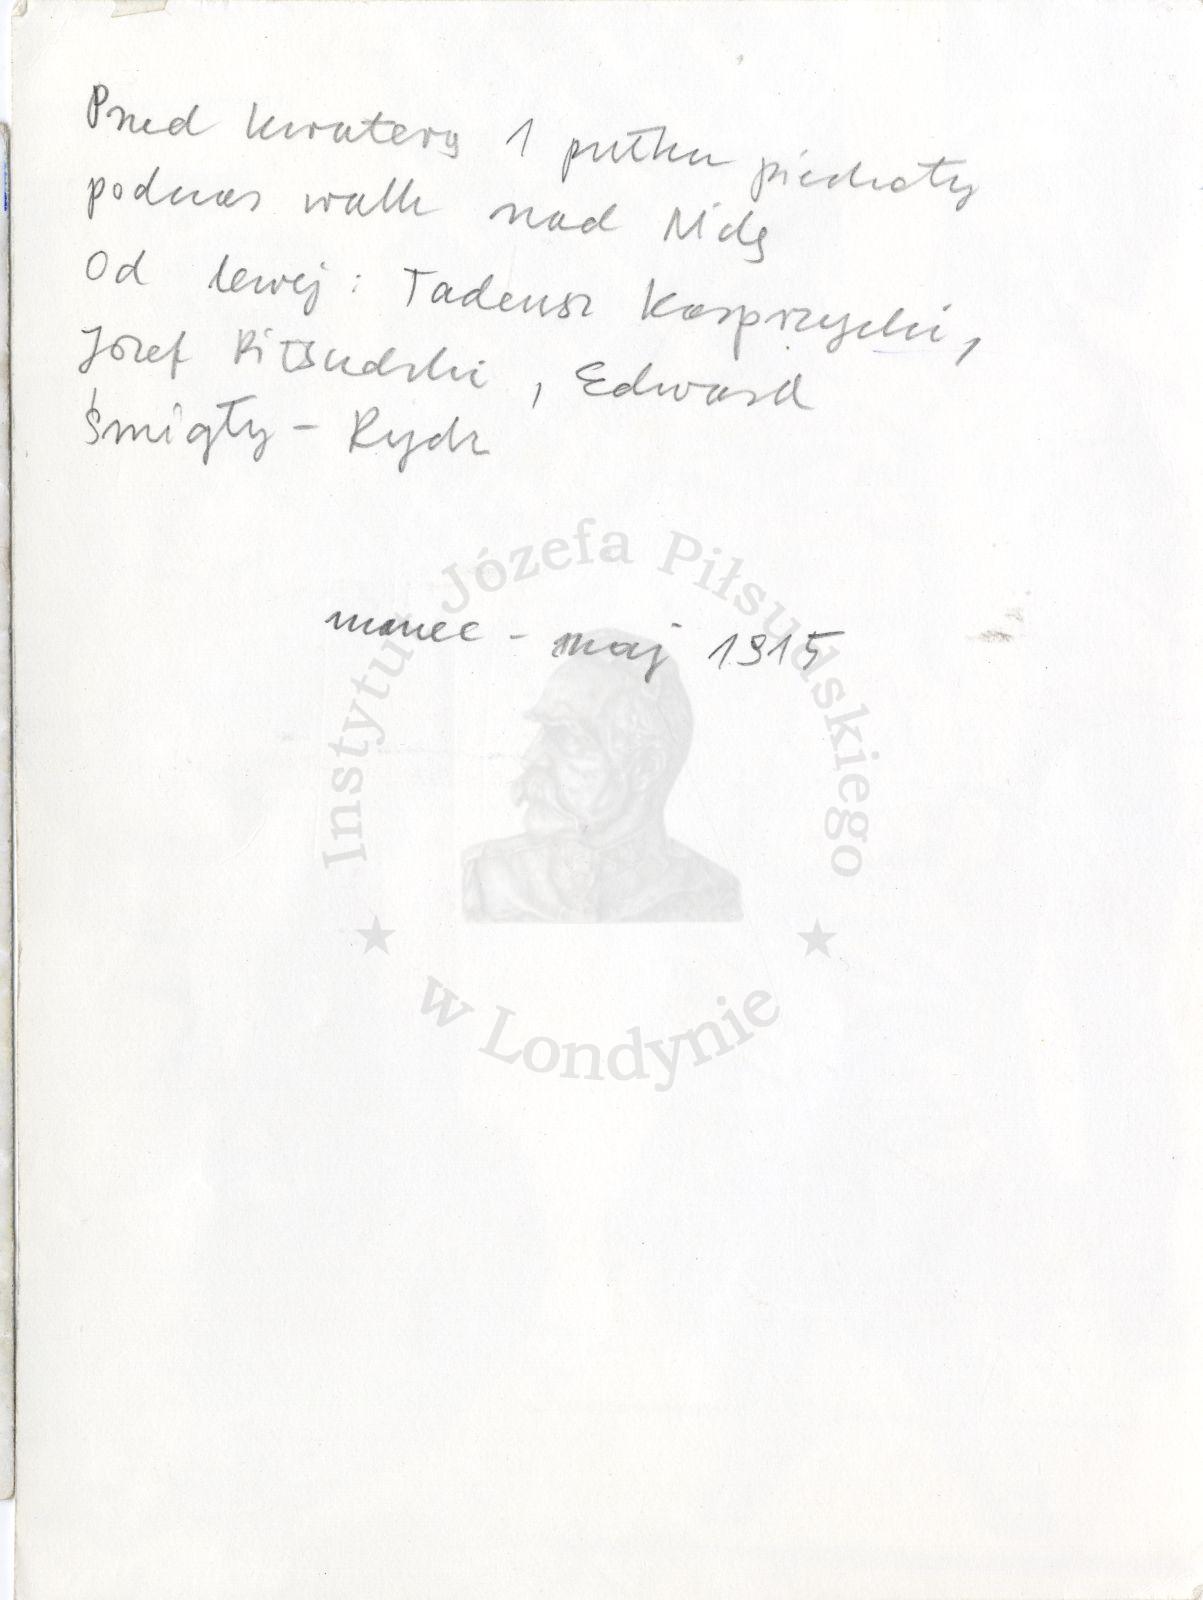 Przed kwaterą 1 pułku piechoty
podczas walk nad Nidą
Od lewej: Tadeusz Kasprzycki,
Józef Piłsudski, Edward
Śmigły - Rydz
marzec - maj 1915
Instytut Józefa Piłsudskiego
w Londynie